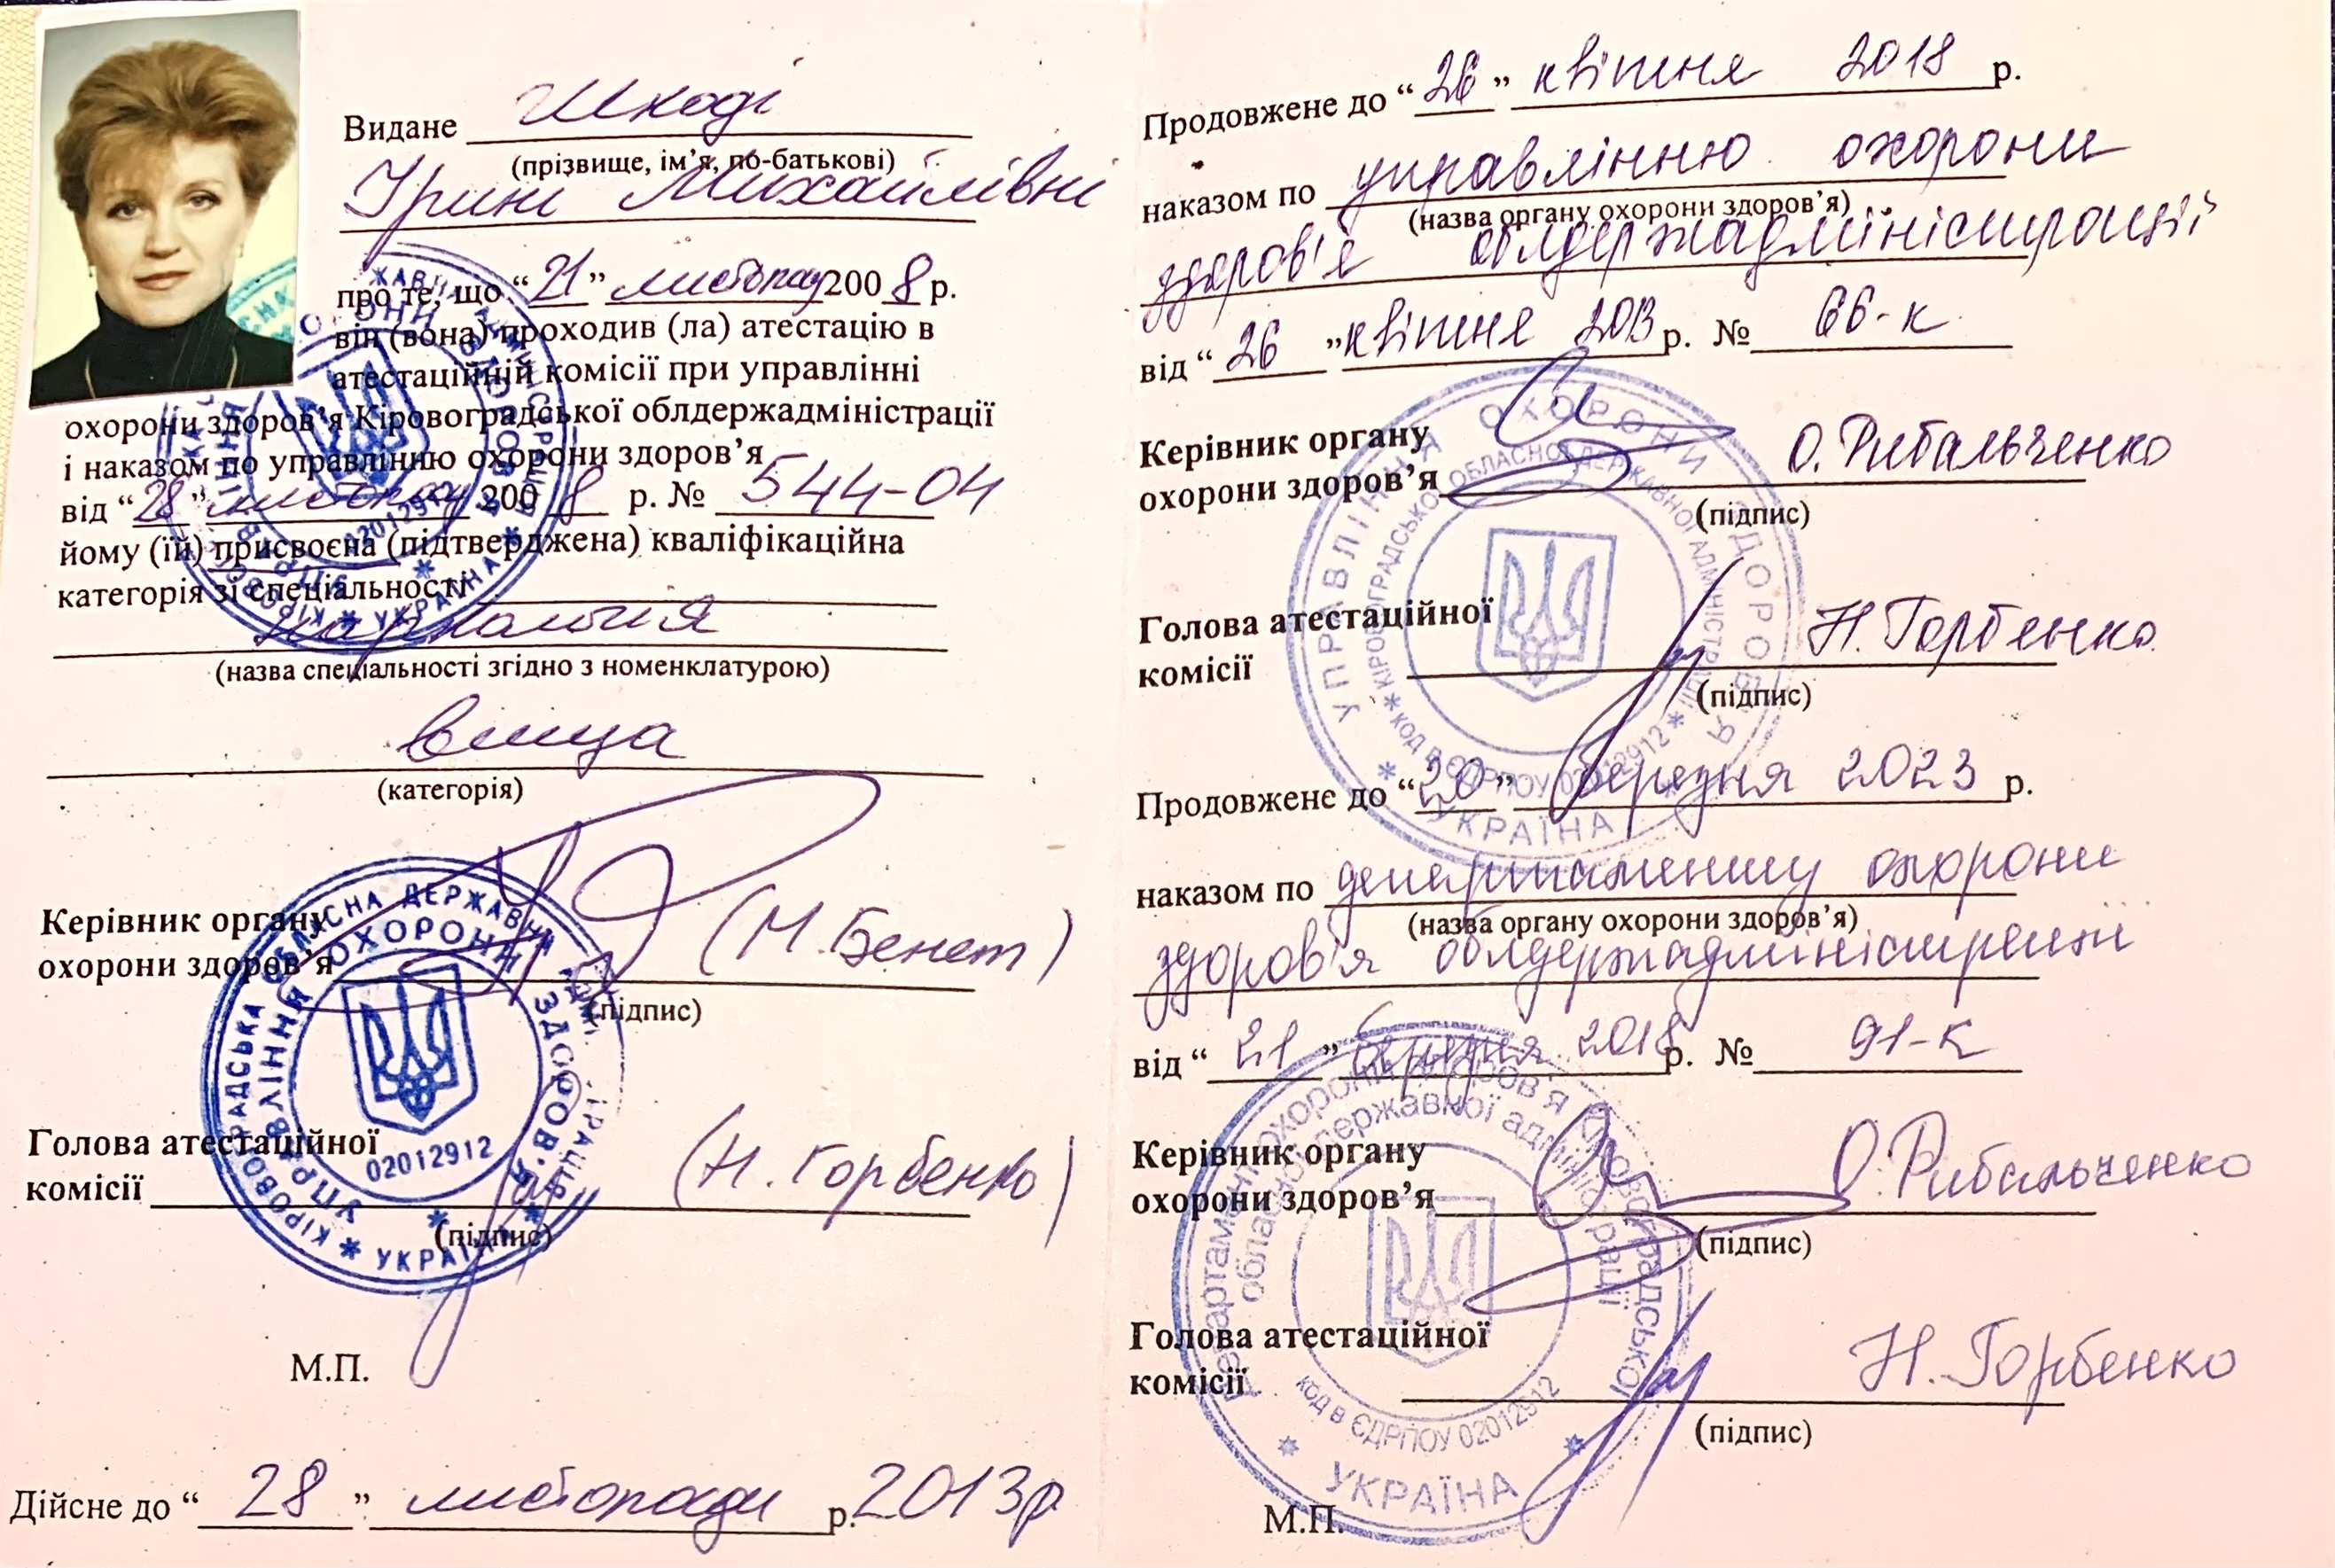 Видане Шкоді
(прізвище, ім’я, по-батькові)
Ірині Михайлівні
про те, що “21” листопад 2008 р.
він (вона) проходив (ла) атестацію в
атестаційній комісії при управлінні
охорони здоров’я Кіровоградської облдержадміністрації
і наказом по управлінню охорони здоров’я
від “28” листопад 2008 р. № 544-04
йому (їй) присвоєна (підтверджена) кваліфікаційна
категорія зі спеціальності
наркологія
(назва спеціальності згідно з номенклатурою)
вища
(категорія)
Керівник органу
охорони здоров’я (М. Бенет)
(підпис)
Голова атестаційної
комісії (Н. Горбенко)
(підпис)
М.П.
Дійсне до “28” листопада р. 2013р
КІРОВОГРАДСЬКА ОБЛАСНА ДЕРЖАВНА
УПРАВЛІННЯ ОХОРОНИ ЗДОРОВ'Я
02012912
УКРАЇНА
Продовжене до “26” квітня 2018 р.
наказом по управлінню охорони
(назва органу охорони здоров’я)
здоров'я облдержадміністрації
від “26” квітня 2013 р. № 66-к
Керівник органу
охорони здоров’я О. Рибальченко
(підпис)
Голова атестаційної
комісії Н. Горбенко
(підпис)
УПРАВЛІННЯ ОХОРОНИ ЗДОРОВ'Я
КІРОВОГРАДСЬКОЇ ОБЛАСНОЇ ДЕРЖАВНОЇ АДМІНІСТРАЦІЇ
КОД В ЄДРПОУ 02012912
УКРАЇНА
Продовжене до “20” березня 2023 р.
наказом по департаменту охорони
(назва органу охорони здоров’я)
здоров'я облдержадміністрації
від “21” березня 2018 р. № 91-к
Керівник органу
охорони здоров’я О. Рибальченко
(підпис)
Голова атестаційної
комісії Н. Горбенко
(підпис)
М.П.
Департамент охорони здоров'я Кіровоградської
обласної державної адміністрації
код в ЄДРПОУ 02012912
УКРАЇНА